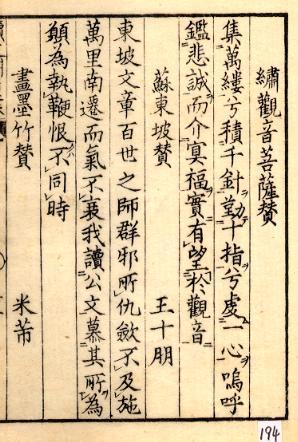 繡觀音菩薩贊
集萬縷兮積千針勤十指兮處一心嗚呼
鑑悲誠而介冥福實有望於觀音
蘇東坡贊　王十朋
東坡文章百世之師群邪所仇斂不及施
萬里南遷而氣不衰我讀公文慕其所為
願為執鞭恨不同時
畫墨竹贊　米芾
194